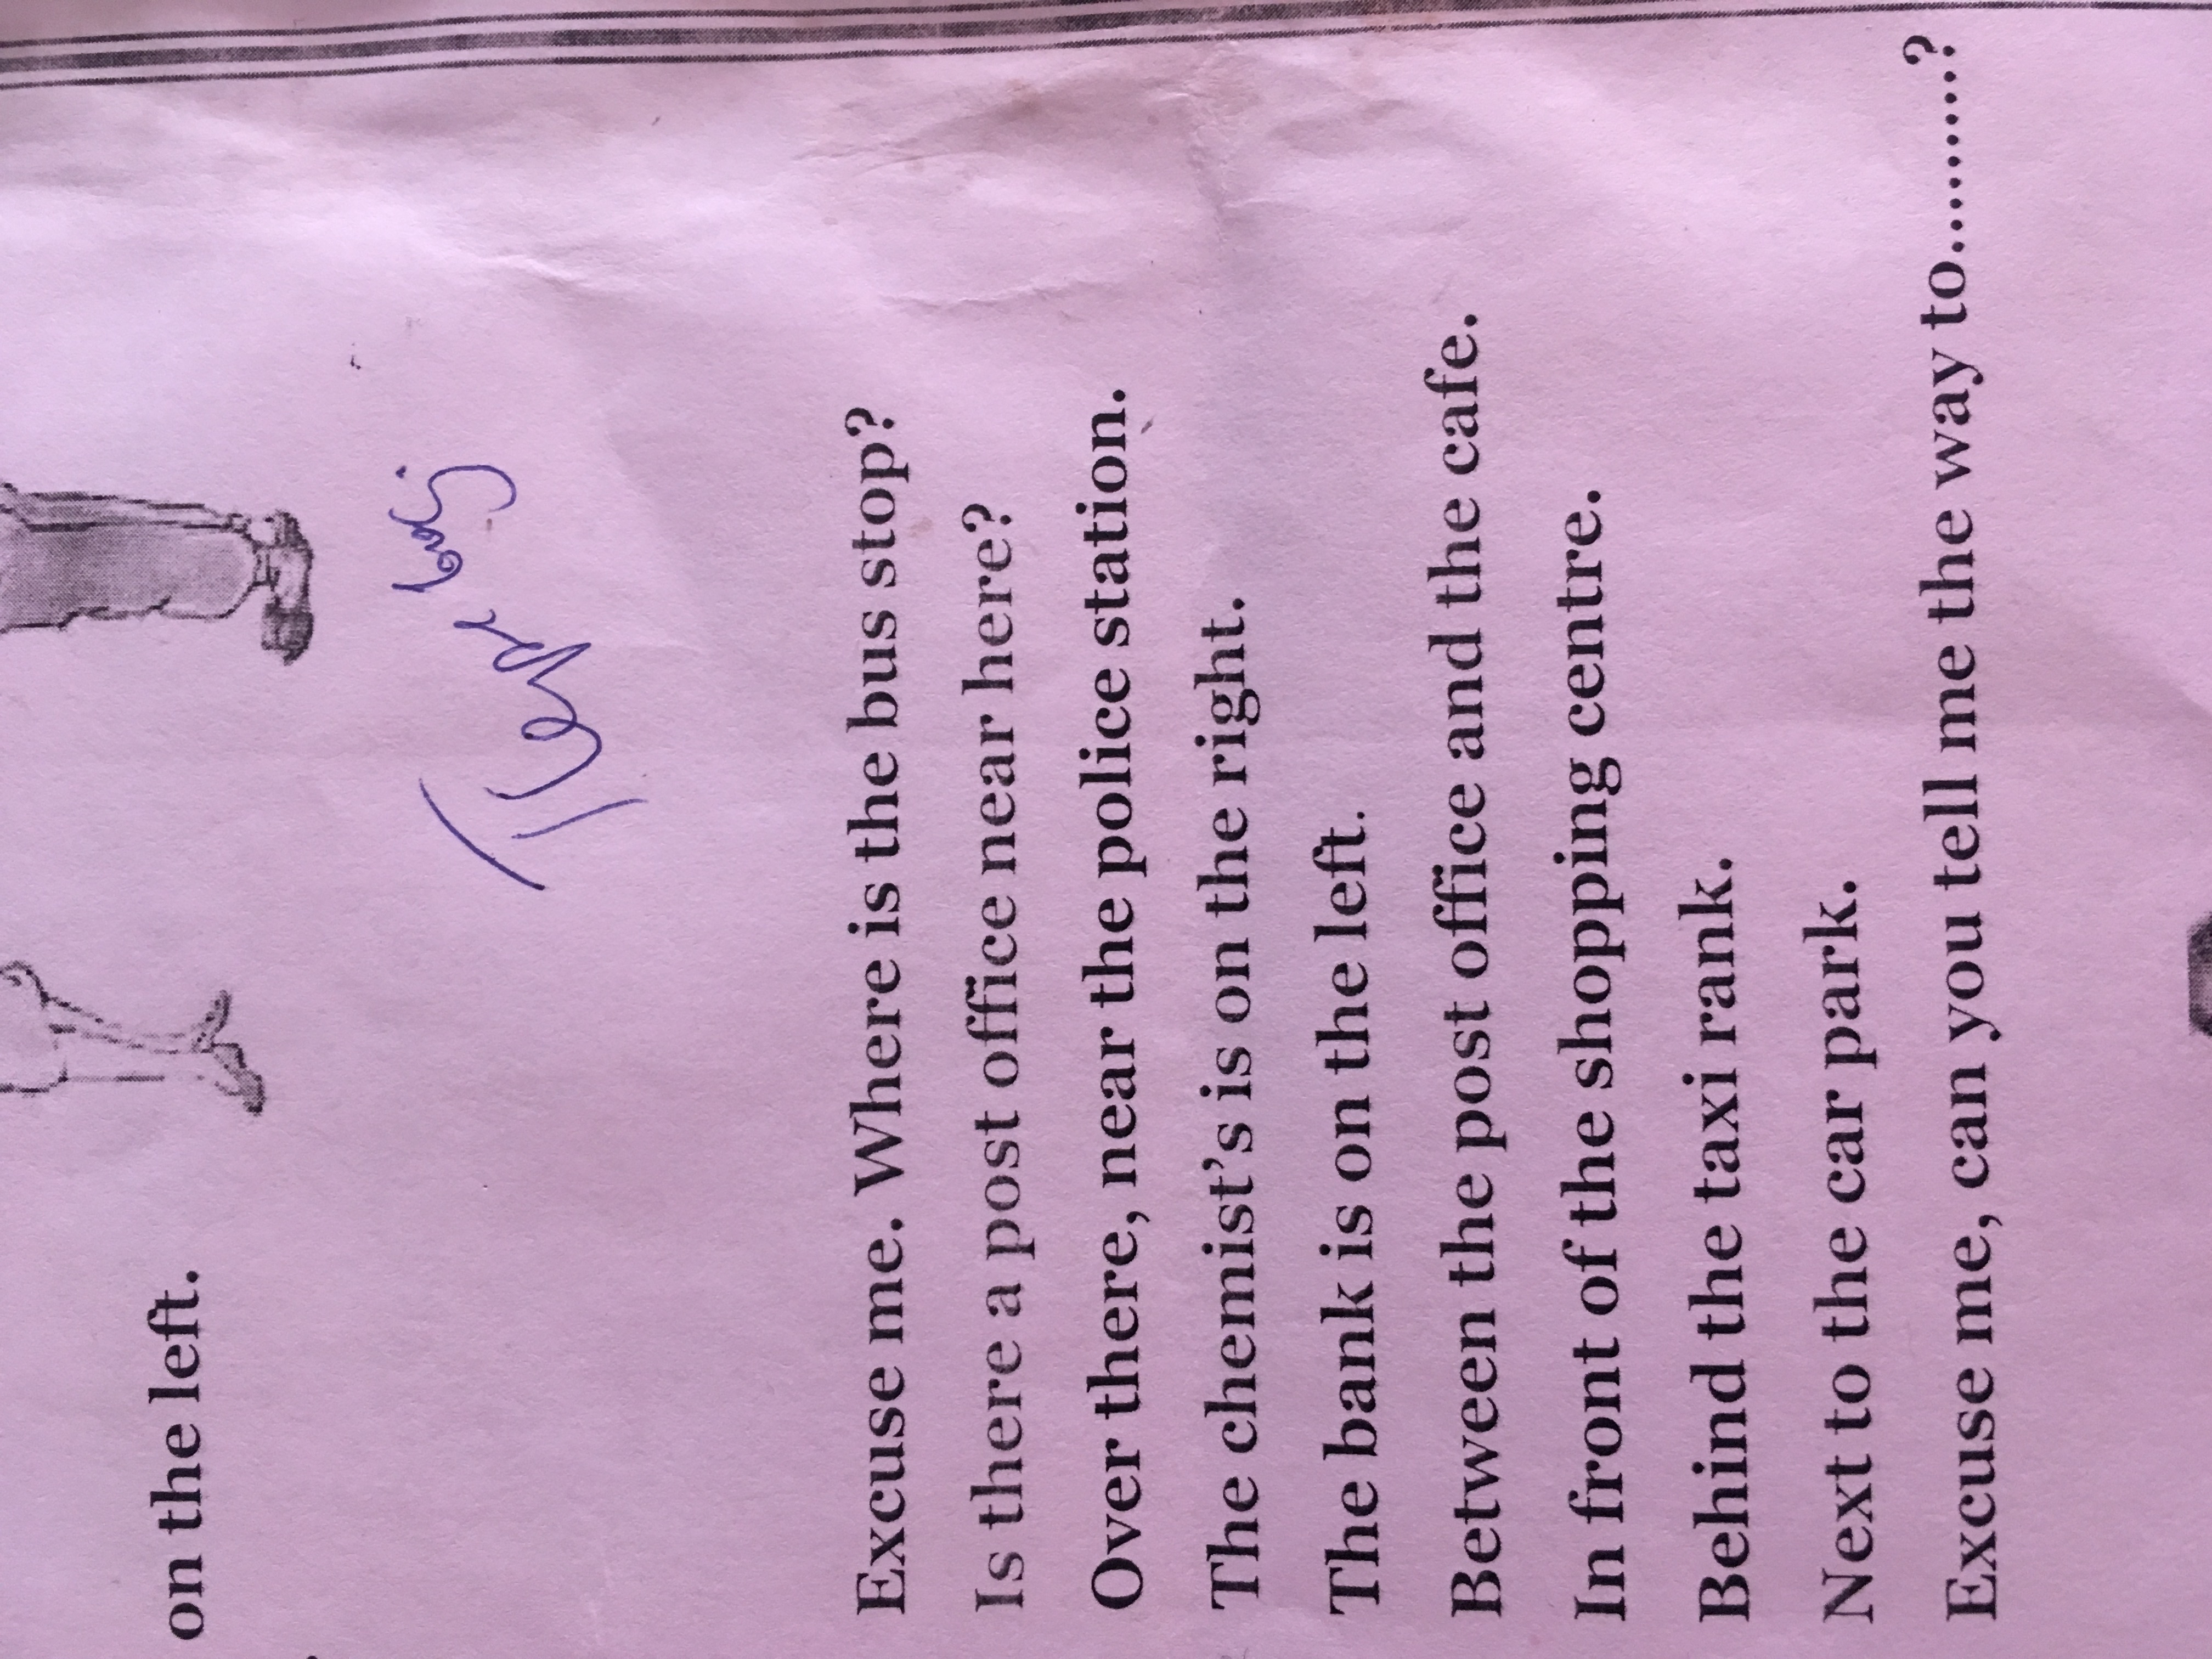 on the left.
Excuse me. Where is the bus stop?
Is there a post office near here?
Over there, near the police station.
The chemist's is on the right.
The bank is on the left.
Between the post office and the cafe.
In front of the shopping centre.
Behind the taxi rank.
Next to the car park.
Excuse me, can you tell me the way to..........?